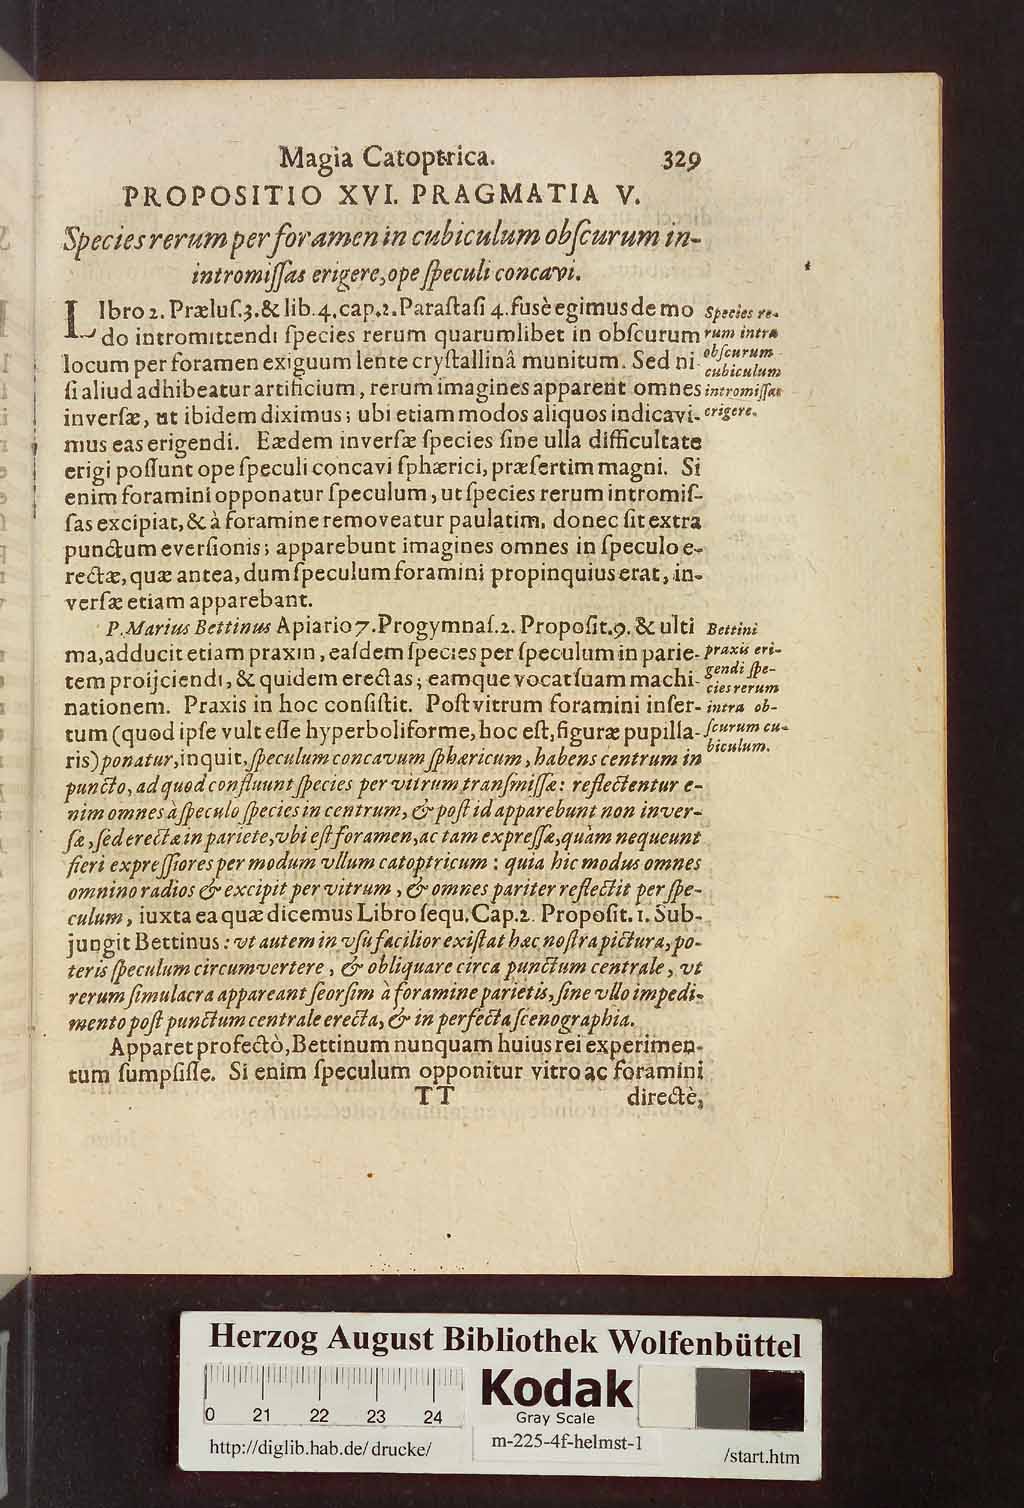 Magia Catoptrica. 329
PROPOSITIO XVI. PRAGMATIA V.
Species rerum per foramen in cubiculum obſcurum in-
intromiſſas erigere, ope ſpeculi concavi.
LIbro 2. Præluſ.3.& lib. 4.cap.2.Paraſtaſi 4.fusè egimus de mo
do intromittendi ſpecies rerum quarumlibet in obſcurum
locum per foramen exiguum lente cryſtallinâ munitum. Sed ni
ſi aliud adhibeatur artificium, rerum imagines apparent omnes
inverſæ, ut ibidem diximus; ubi etiam modos aliquos indicavi-
mus eas erigendi. Eædem inverſæ ſpecies ſine ulla difficultate
erigi poſſunt ope ſpeculi concavi ſphærici, præſertim magni. Si
enim foramini opponatur ſpeculum, ut ſpecies rerum intromiſ-
ſas excipiat, & à foramine removeatur paulatim, donec ſit extra
punctum everſionis; apparebunt imagines omnes in ſpeculo e-
rectæ, quæ antea, dum ſpeculum foramini propinquius erat, in-
verſæ etiam apparebant.
Species re-
rum intra
obſcurum
cubiculum
intromiſſas
erigere.
P. Marius Bettinus Apiario 7. Progymnaſ.2. Propoſit.9. & ulti
ma, adducit etiam praxin, eaſdem ſpecies per ſpeculum in parie-
tem proijciendi, & quidem erectas; eamque vocat ſuam machi-
nationem. Praxis in hoc conſiſtit. Poſt vitrum foramini inſer-
tum (quod ipſe vult eſſe hyperboliforme, hoc eſt, figuræ pupilla-
ris) ponatur, inquit, ſpeculum concavum ſphæricum, habens centrum in
puncto, ad quod confluunt ſpecies per vitrum tranſmiſſæ: reflectentur e-
nim omnes à ſpeculo ſpecies in centrum, & poſt id apparebunt non inver-
ſæ, ſed erectæ in pariete, vbi eſt foramen, ac tam expreſſæ, quàm nequeunt
fieri expreſſiores per modum vllum catoptricum: quia hic modus omnes
omnino radios & excipit per vitrum, & omnes pariter reflectit per ſpe-
culum, iuxta ea quæ dicemus Libro ſequ. Cap.2. Propoſit. 1. Sub-
jungit Bettinus: vt autem in vſu facilior exiſtat hæc noſtra pictura, po-
teris ſpeculum circumvertere, & obliquare circa punctum centrale, vt
rerum ſimulacra appareant ſeorſim à foramine parietis, ſine vllo impedi-
mento poſt punctum centrale erecta, & in perfecta ſcenographia.
Bettini
praxis eri-
gendi ſpe-
cies rerum
intra ob-
ſcurum cu-
biculum.
Apparet profectò, Bettinum nunquam huius rei experimen-
tum ſumpſiſſe. Si enim ſpeculum opponitur vitro ac foramini
TT directè,
Herzog August Bibliothek Wolfenbüttel
0 21 22 23 24
Kodak
Gray Scale
http://diglib.hab.de/drucke/
m-225-4f-helmst-1
/start.htm